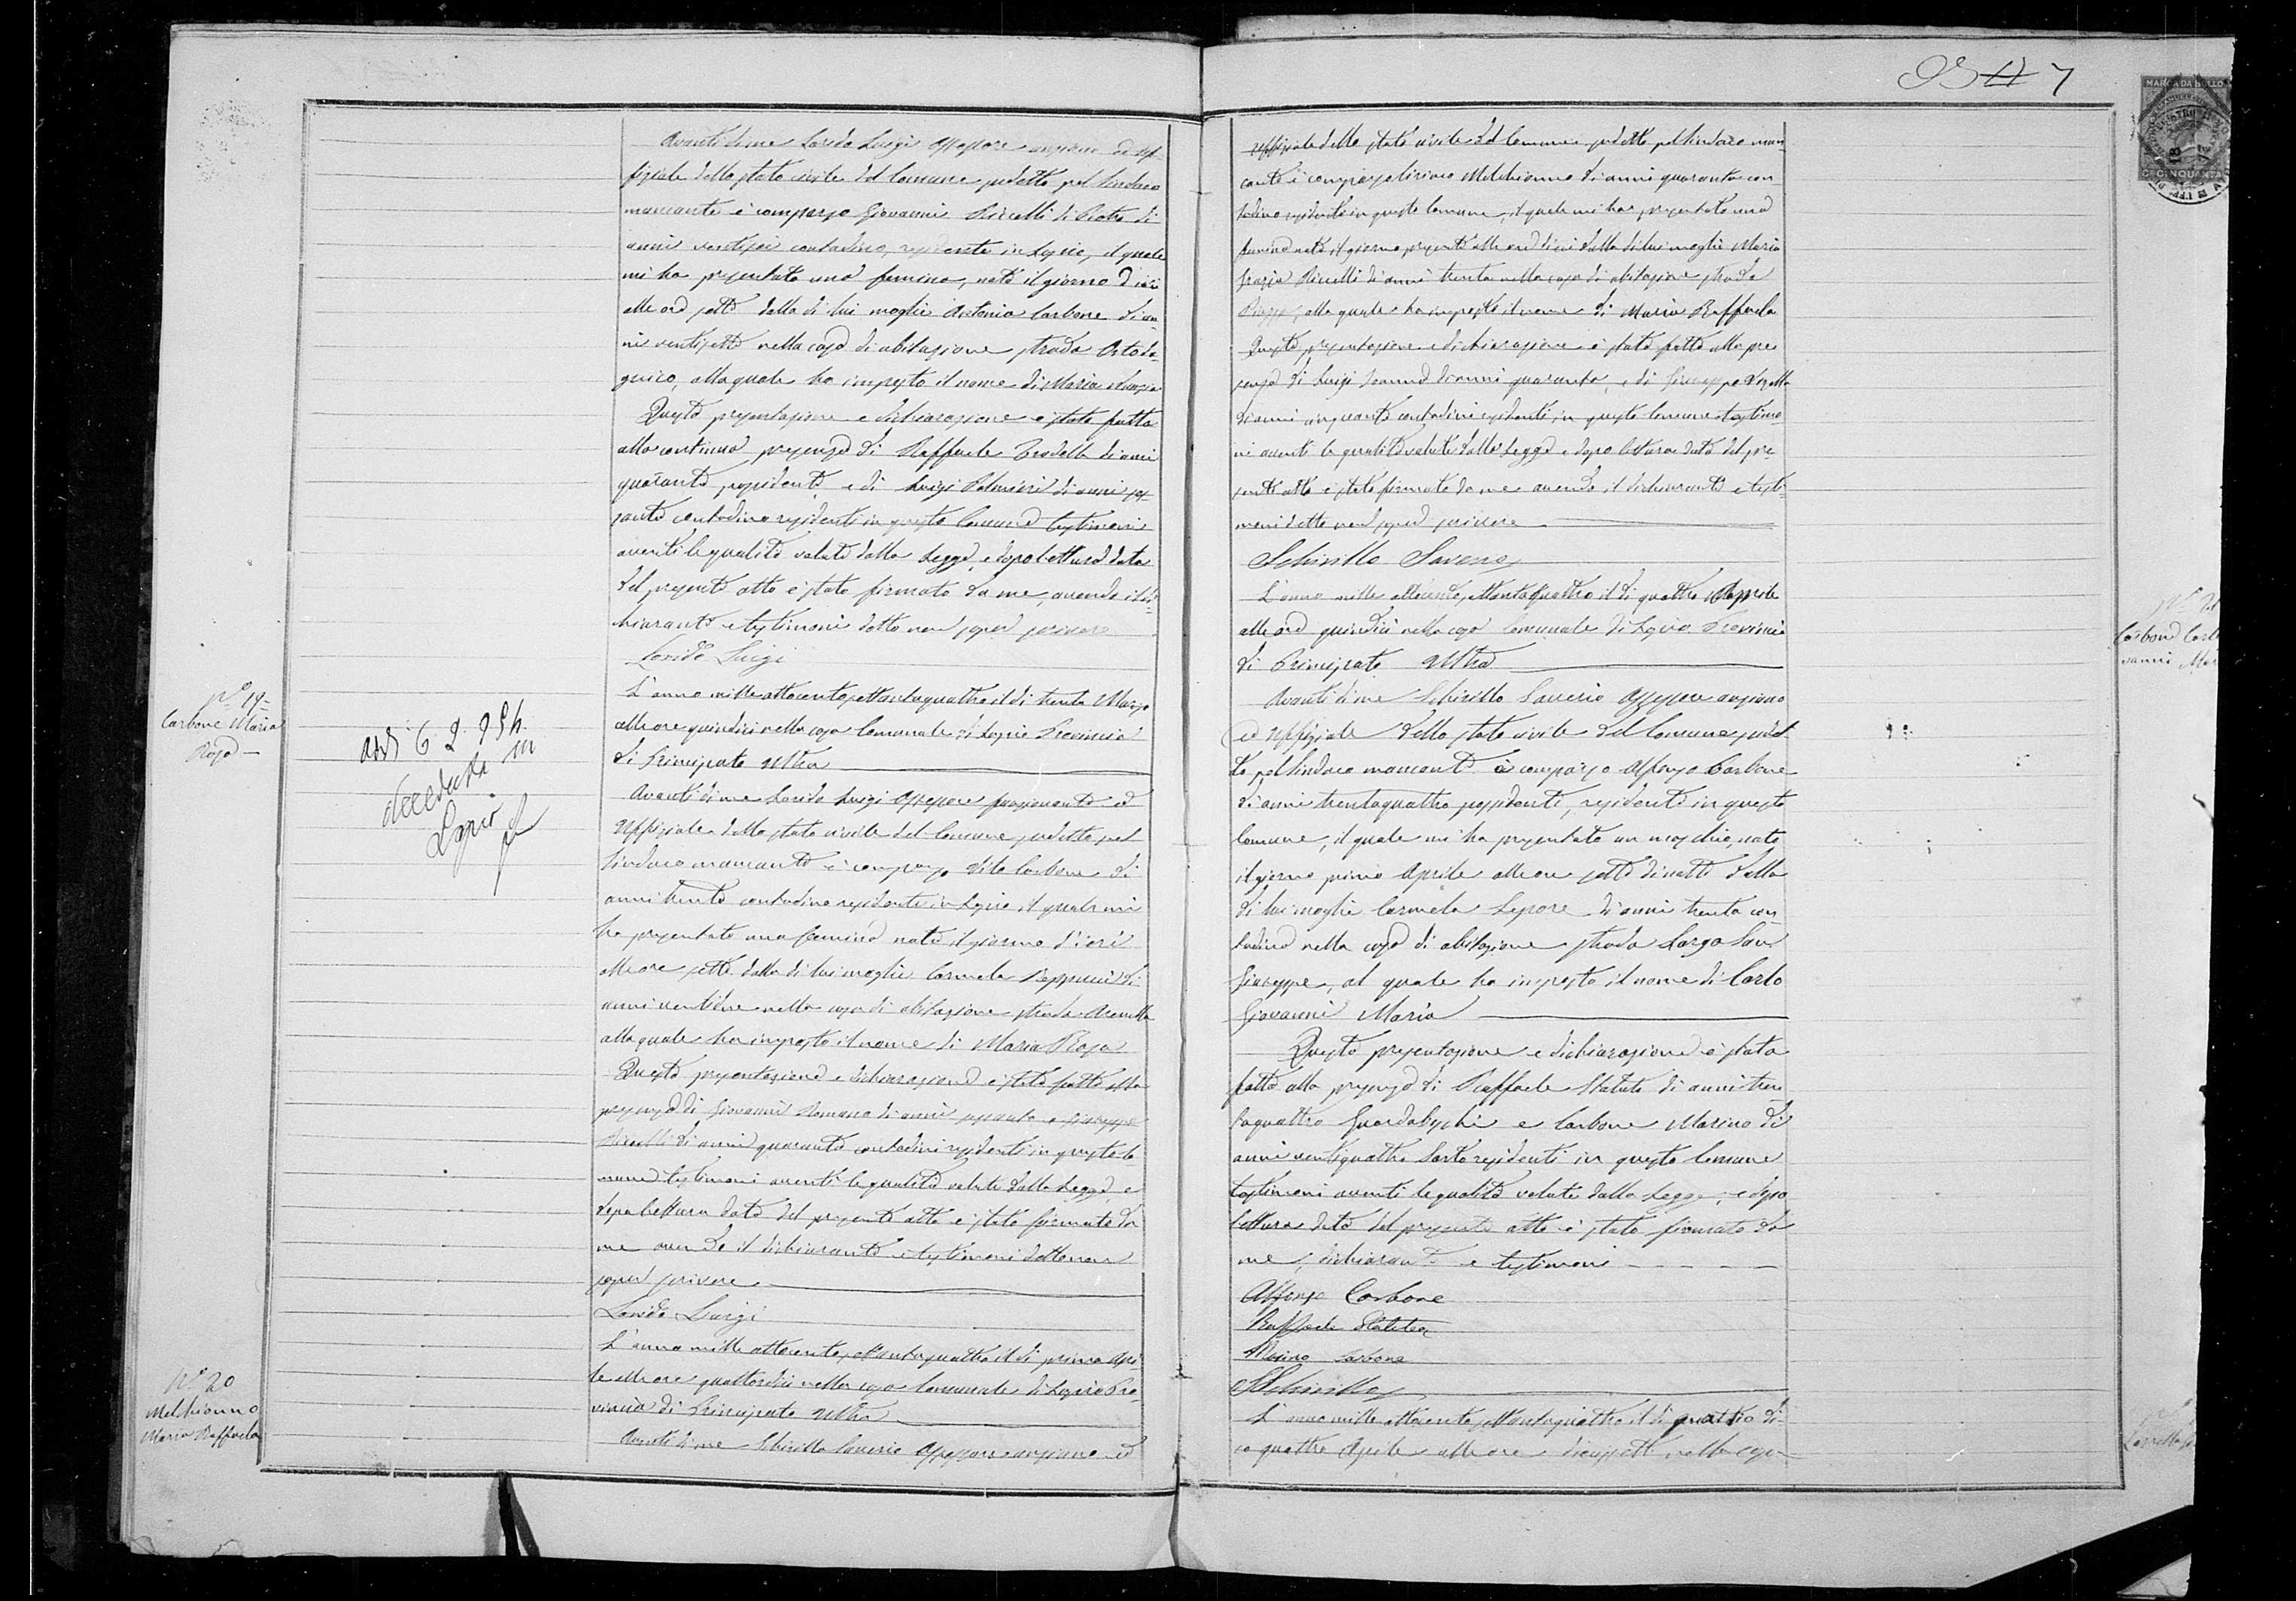 Avanti di me Lorido Luigi Assessore anziano ed Uf-
fiziale dello stato civile del Comune sudetto pel Sindaco
mancante è comparso Giovanni di Pietro di
anni ventisei contadino, residente in Lapio, il quale
mi ha presentato una femina, nata il giorno d'ieri
alle ore sette dalla di lui moglie Antonia Carbone di an-
ni ventisette nella casa di abitazione strada
alla quale ha imposto il nome di Maria
Questa presentazione e dichiarazione è stata fatta
alla continua presenza di Raffaele di anni
quaranta possidente e di Luigi Palmieri di anni ses-
santa contadino residenti in questo Comune testimoni
aventi le qualità volute dalla Legge, e dopo lettura data
del presente atto è stato firmato da me, avendo il di-
chiarante e testimoni detto non saper scrivere
Lorido Luigi
N.º 19=
Carbone Maria
Rosa
Addì 6. 2. 954.
deceduta in
Lapio
L'anno mille ottocento settantaquattro il di trenta Marzo
alle ore quindici nella casa Comunale di Lapio Provincia
di Principato Ultra
Avanti di me Lorido Luigi Assessore funzionante ed
Uffiziale dello stato civile del Comune sudetto pel
Sindaco mancante è comparso Vito Carbone di
anni trenta contadino residente in Lapio, il quale mi
ha presentato una femina nata il giorno d'ieri
alle ore sette dalla di lui moglie Carmela di
anni ventidue nella casa di abitazione strada
alla quale ha imposto il nome di Maria Rosa
Questa presentazione e dichiarazione è stata fatta alla
presenza di Giovanni Romano di anni sessanta e Giuseppe
di anni quaranta contadini residenti in questo Co-
mune testimoni aventi le qualità volute dalla Legge, e
dopo lettura data del presente atto è stato firmato da
me avendo il dichiarante e testimoni detto non
saper scrivere
Lorido Luigi
N.º 20
Melchionno
Maria Raffaela
L'anno mille ottocento settantaquattro il di primo Apri-
le alle ore quattordici nella casa Comunale di Lapio Pro-
vincia di Principato Ultra
Avanti di me Schirillo Saverio Assessore anziano ed
7
MARCA DA BOLLO
C. CINQUANTA
Uffiziale dello stato civile del Comune sudetto pel Sindaco man-
cante è comparso Melchionno di anni quaranta con-
tadino residente in questo Comune, il quale mi ha presentato una
femina nata il giorno presente alle ore dieci dalla di lui moglie Maria
Grazia di anni trenta nella casa di abitazione strada
Piazza, alla quale ha imposto il nome di Maria Raffaela
Questa presentazione e dichiarazione è stata fatta alla pre-
senza di Luigi di anni quaranta, e di Giuseppe
di anni cinquanta contadini residenti in questo Comune testimo-
ni aventi le qualità volute dalla Legge e dopo lettura data del pre-
sente atto è stato firmato da me avendo il dichiarante e testi-
moni detto non saper scrivere
Schirillo Saverio
Carbone Carlo
vanni Mar
L'anno mille ottocento settantaquattro il di quattro Aprile
alle ore quindici nella casa Comunale di Lapio Provincia
di Principato Ultra
Avanti di me Schirillo Saverio Assessore anziano
ed Uffiziale dello stato civile del Comune sudet-
to pel Sindaco mancante è comparso Alfonso Carbone
di anni trentaquattro possidente, residente in questo
Comune, il quale mi ha presentato un maschio, nato
il giorno primo Aprile alle ore sette di notte dalla
di lui moglie Carmela Lepore di anni trenta con-
tadina nella casa di abitazione strada Largo San
Giuseppe, al quale ha imposto il nome di Carlo
Giovanni Maria
Questa presentazione e dichiarazione è stata
fatta alla presenza di Raffaele Statuto di anni tren-
taquattro Guardaboschi e Carbone Marino di
anni ventiquattro Sarto residenti in questo Comune
testimoni aventi le qualità volute dalla Legge, e dopo
lettura data del presente atto è stato firmato da
me, dichiarante e testimoni
Alfonso Carbone
Raffaele
Marino Carbone
Schirillo
L'anno mille ottocento settantaquattro il di quattro di-
co quattro Aprile alle ore diecisette nella casa